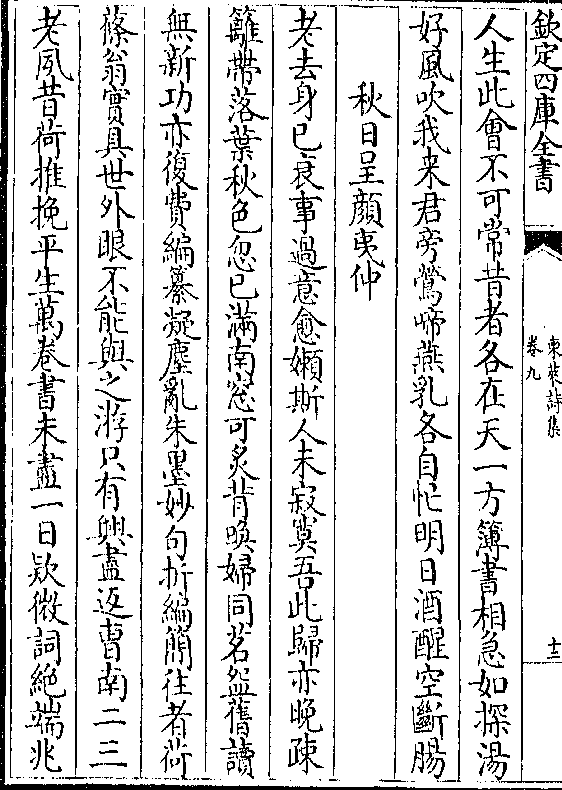 欽定四庫全書
東萊詩集
卷九
十二
人生此會不可常昔者各在天一方簿書相急如探湯
好風吹我来君旁鶯啼燕乳各自忙明日酒醒空斷腸
秋日呈顔夷仲
老去身已衰事過意愈嬾斯人未寂寞吾此歸亦晚疎
籬帶落葉秋色忽已滿南窓可炙背喚婦同茗盌舊讀
無新功亦復費編纂凝塵亂朱墨妙句折編簡往者荷
蓧翁實具世外眼不能與之游只有興盡返曹南二三
老夙昔荷推挽平生萬卷書未盡一日欵微詞絶端兆